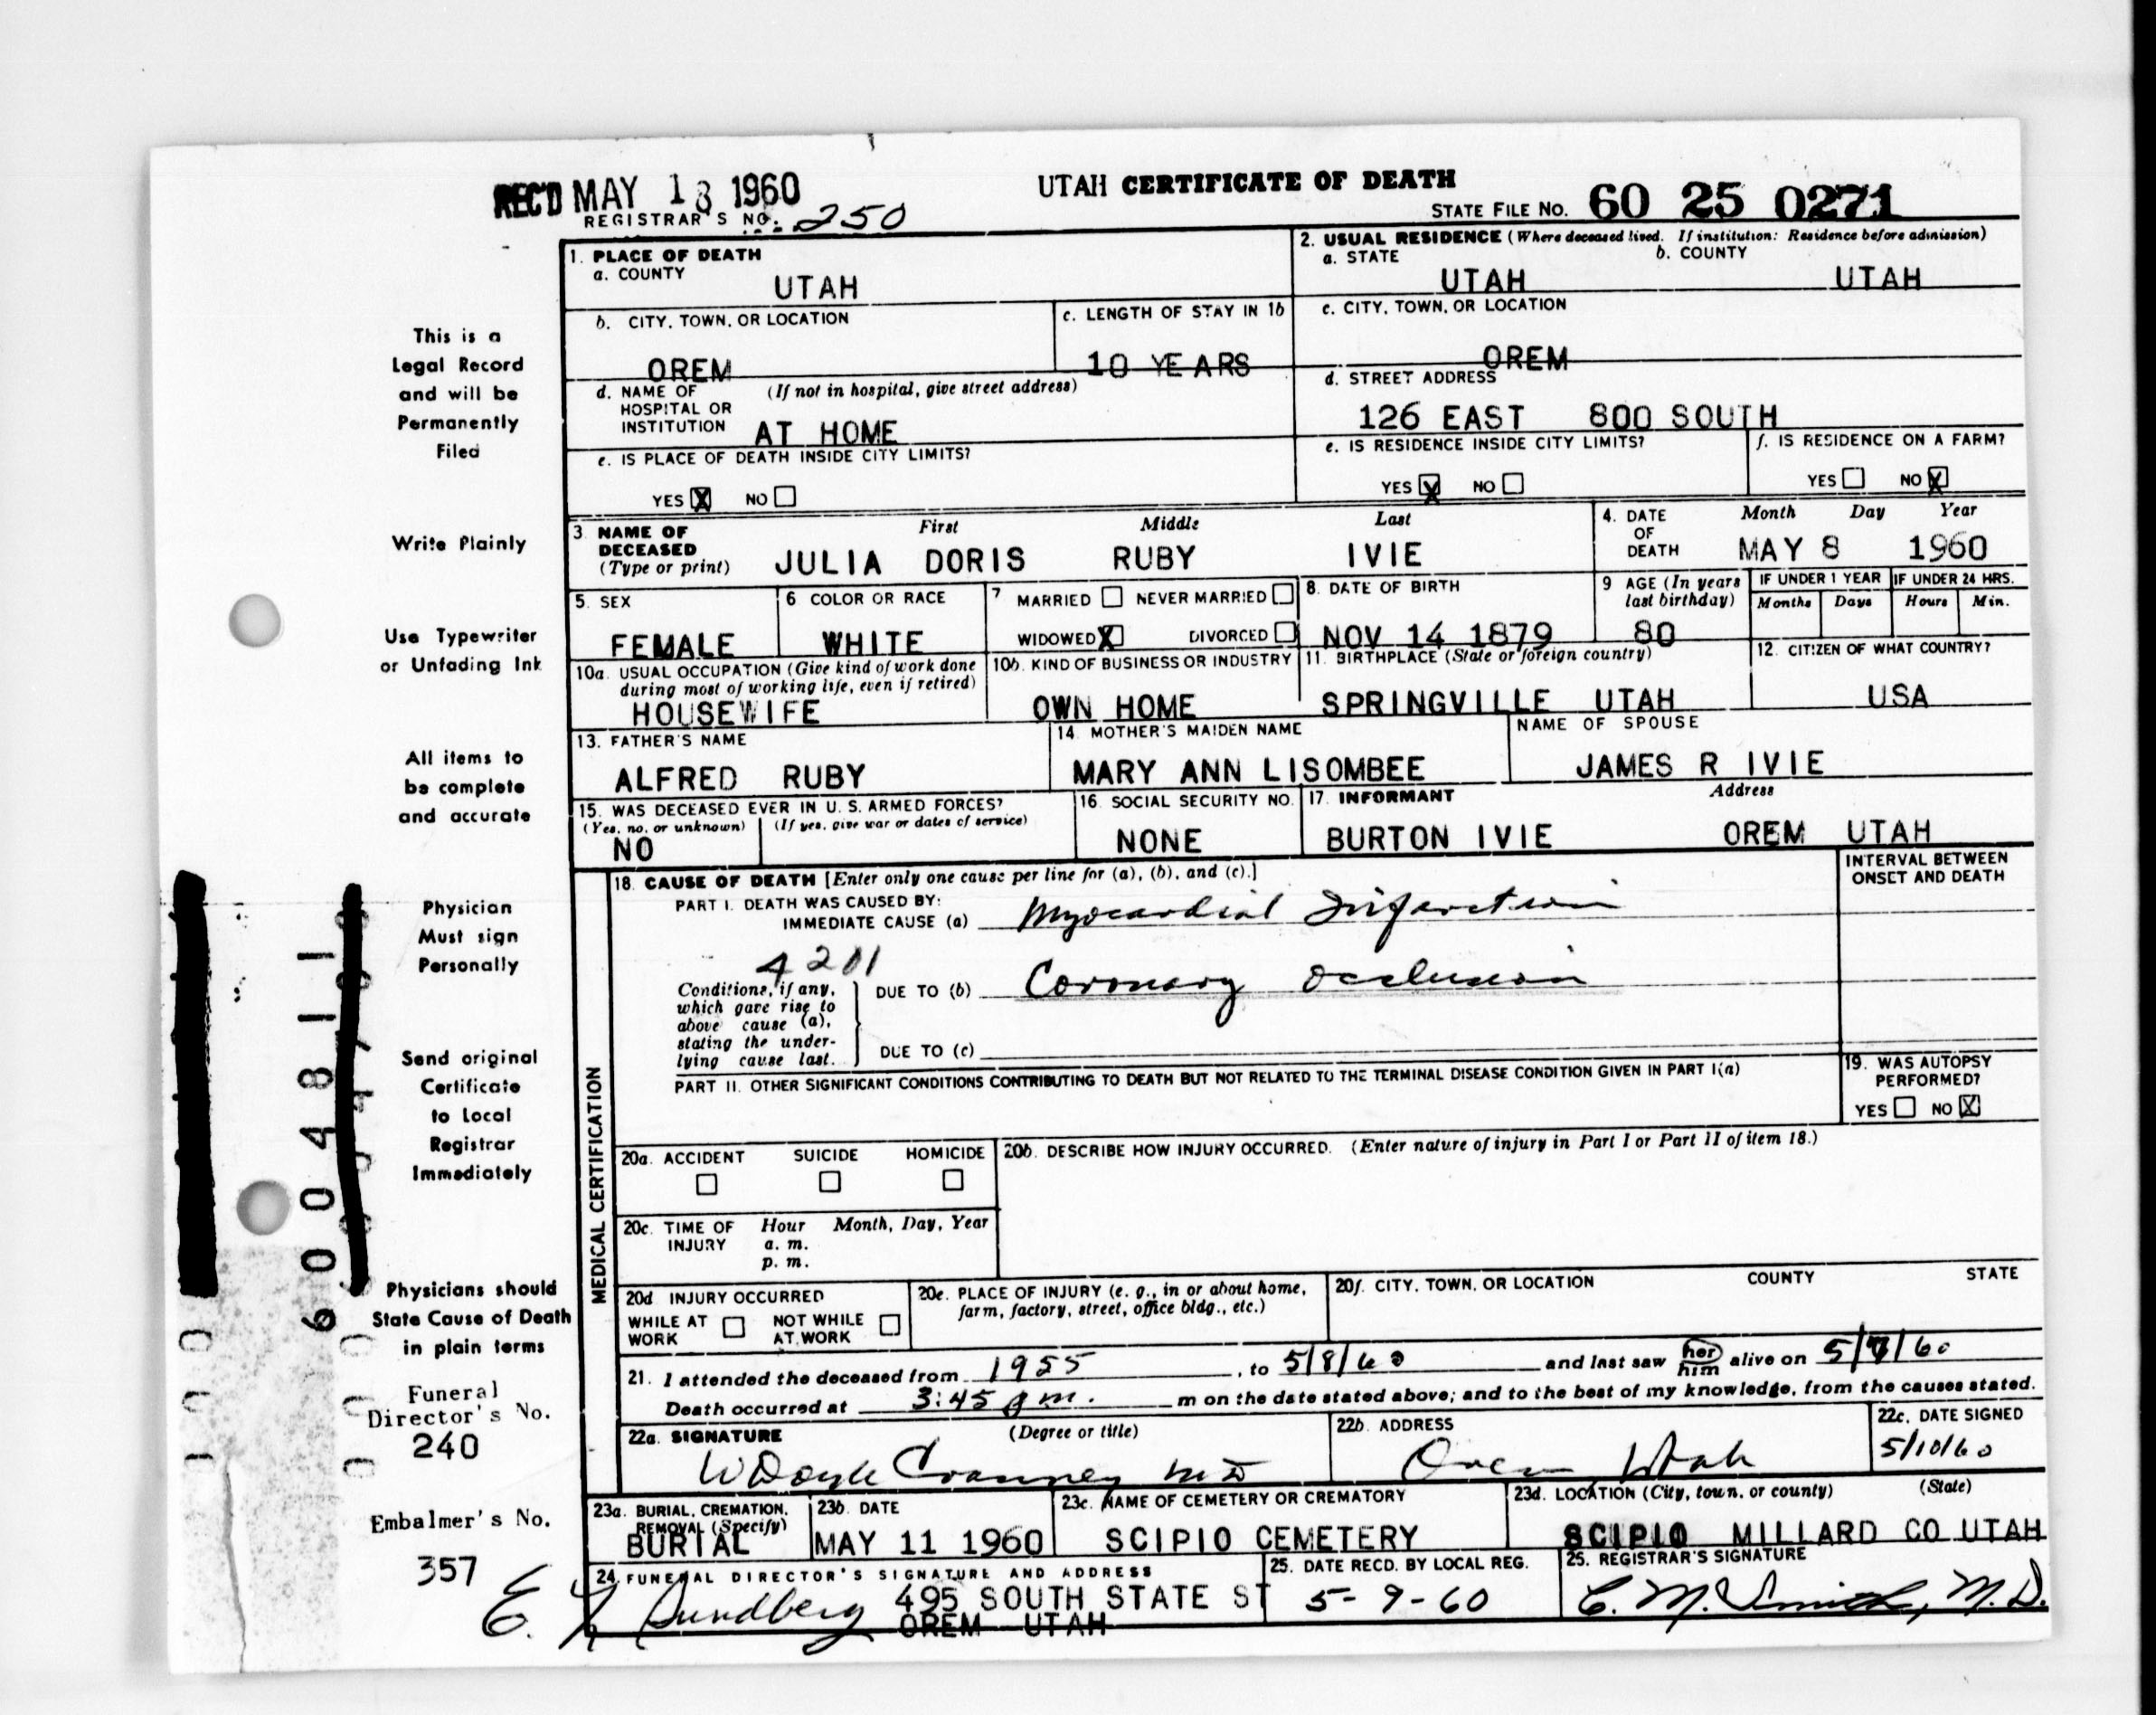 REC'D MAY 13 1960
UTAH CERTIFICATE OF DEATH
REGISTRAR'S NO. 250
STATE FILE NO. 60 25 0271
1. PLACE OF DEATH
a. COUNTY
UTAH
2. USUAL RESIDENCE (Where deceased lived. If institution: Residence before admission)
a. STATE
UTAH
b. COUNTY
UTAH
b. CITY, TOWN, OR LOCATION
OREM
c. LENGTH OF STAY IN 1b
10 YEARS
c. CITY, TOWN, OR LOCATION
OREM
d. NAME OF HOSPITAL OR INSTITUTION (If not in hospital, give street address)
AT HOME
d. STREET ADDRESS
126 EAST 800 SOUTH
e. IS PLACE OF DEATH INSIDE CITY LIMITS?
YES X NO
e. IS RESIDENCE INSIDE CITY LIMITS?
YES X NO
f. IS RESIDENCE ON A FARM?
YES NO X
3. NAME OF DECEASED (Type or print)
First Middle Last
JULIA DORIS RUBY IVIE
4. DATE OF DEATH
Month Day Year
MAY 8 1960
5. SEX
FEMALE
6 COLOR OR RACE
WHITE
7 MARRIED NEVER MARRIED
WIDOWED X DIVORCED
8. DATE OF BIRTH
NOV 14 1879
9 AGE (In years last birthday)
80
IF UNDER 1 YEAR
Months Days
IF UNDER 24 HRS.
Hours Min.
10a. USUAL OCCUPATION (Give kind of work done during most of working life, even if retired)
HOUSEWIFE
10b. KIND OF BUSINESS OR INDUSTRY
OWN HOME
11. BIRTHPLACE (State or foreign country)
SPRINGVILLE UTAH
12. CITIZEN OF WHAT COUNTRY?
USA
13. FATHER'S NAME
ALFRED RUBY
14. MOTHER'S MAIDEN NAME
MARY ANN LISOMBEE
NAME OF SPOUSE
JAMES R IVIE
15. WAS DECEASED EVER IN U. S. ARMED FORCES?
(Yes, no, or unknown) (If yes, give war or dates of service)
NO
16. SOCIAL SECURITY NO.
NONE
17. INFORMANT Address
BURTON IVIE OREM UTAH
MEDICAL CERTIFICATION
18. CAUSE OF DEATH [Enter only one cause per line for (a), (b), and (c).]
INTERVAL BETWEEN ONSET AND DEATH
PART I. DEATH WAS CAUSED BY:
IMMEDIATE CAUSE (a) Myocardial Infarction
4201
Conditions, if any, which gave rise to above cause (a), stating the underlying cause last.
DUE TO (b) Coronary Occlusion
DUE TO (c)
PART II. OTHER SIGNIFICANT CONDITIONS CONTRIBUTING TO DEATH BUT NOT RELATED TO THE TERMINAL DISEASE CONDITION GIVEN IN PART I(a)
19. WAS AUTOPSY PERFORMED?
YES NO X
20a. ACCIDENT SUICIDE HOMICIDE
20b. DESCRIBE HOW INJURY OCCURRED. (Enter nature of injury in Part I or Part II of item 18.)
20c. TIME OF INJURY Hour Month, Day, Year
a. m.
p. m.
20d INJURY OCCURRED
WHILE AT WORK NOT WHILE AT WORK
20e. PLACE OF INJURY (e. g., in or about home, farm, factory, street, office bldg., etc.)
20f. CITY, TOWN, OR LOCATION COUNTY STATE
21. I attended the deceased from 1955, to 5/8/60 and last saw her him alive on 5/7/60
Death occurred at 3:45 m. m on the date stated above; and to the best of my knowledge, from the causes stated.
22a. SIGNATURE (Degree or title)
W Doyle Cranney MD
22b. ADDRESS
Orem, Utah
22c. DATE SIGNED
5/10/60
23a. BURIAL, CREMATION, REMOVAL (Specify)
BURIAL
23b. DATE
MAY 11 1960
23c. NAME OF CEMETERY OR CREMATORY
SCIPIO CEMETERY
23d. LOCATION (City, town, or county) (State)
SCIPIO MILLARD CO UTAH
24. FUNERAL DIRECTOR'S SIGNATURE AND ADDRESS
Sundberg 495 SOUTH STATE ST
OREM UTAH
25. DATE RECD. BY LOCAL REG.
5-9-60
25. REGISTRAR'S SIGNATURE
C. M. Smith, M.D.
This is a
Legal Record
and will be
Permanently
Filed
Write Plainly
Use Typewriter
or Unfading Ink
All items to
be complete
and accurate
Physician
Must sign
Personally
Send original
Certificate
to Local
Registrar
Immediately
Physicians should
State Cause of Death
in plain terms
Funeral
Director's No.
240
Embalmer's No.
357
6004811